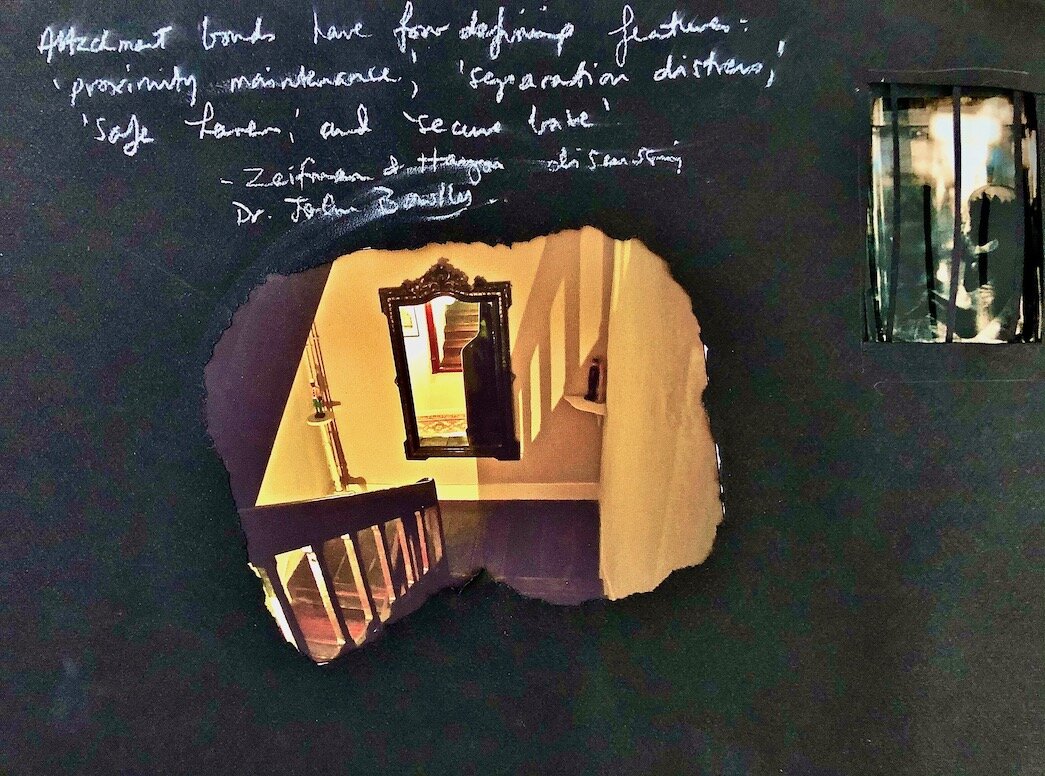 Attachment bonds have four defining features:
'proximity maintenance,' 'separation distress,'
'safe haven,' and 'secure base'
- Zeifman & Hazan discussing
Dr. John Bowlby